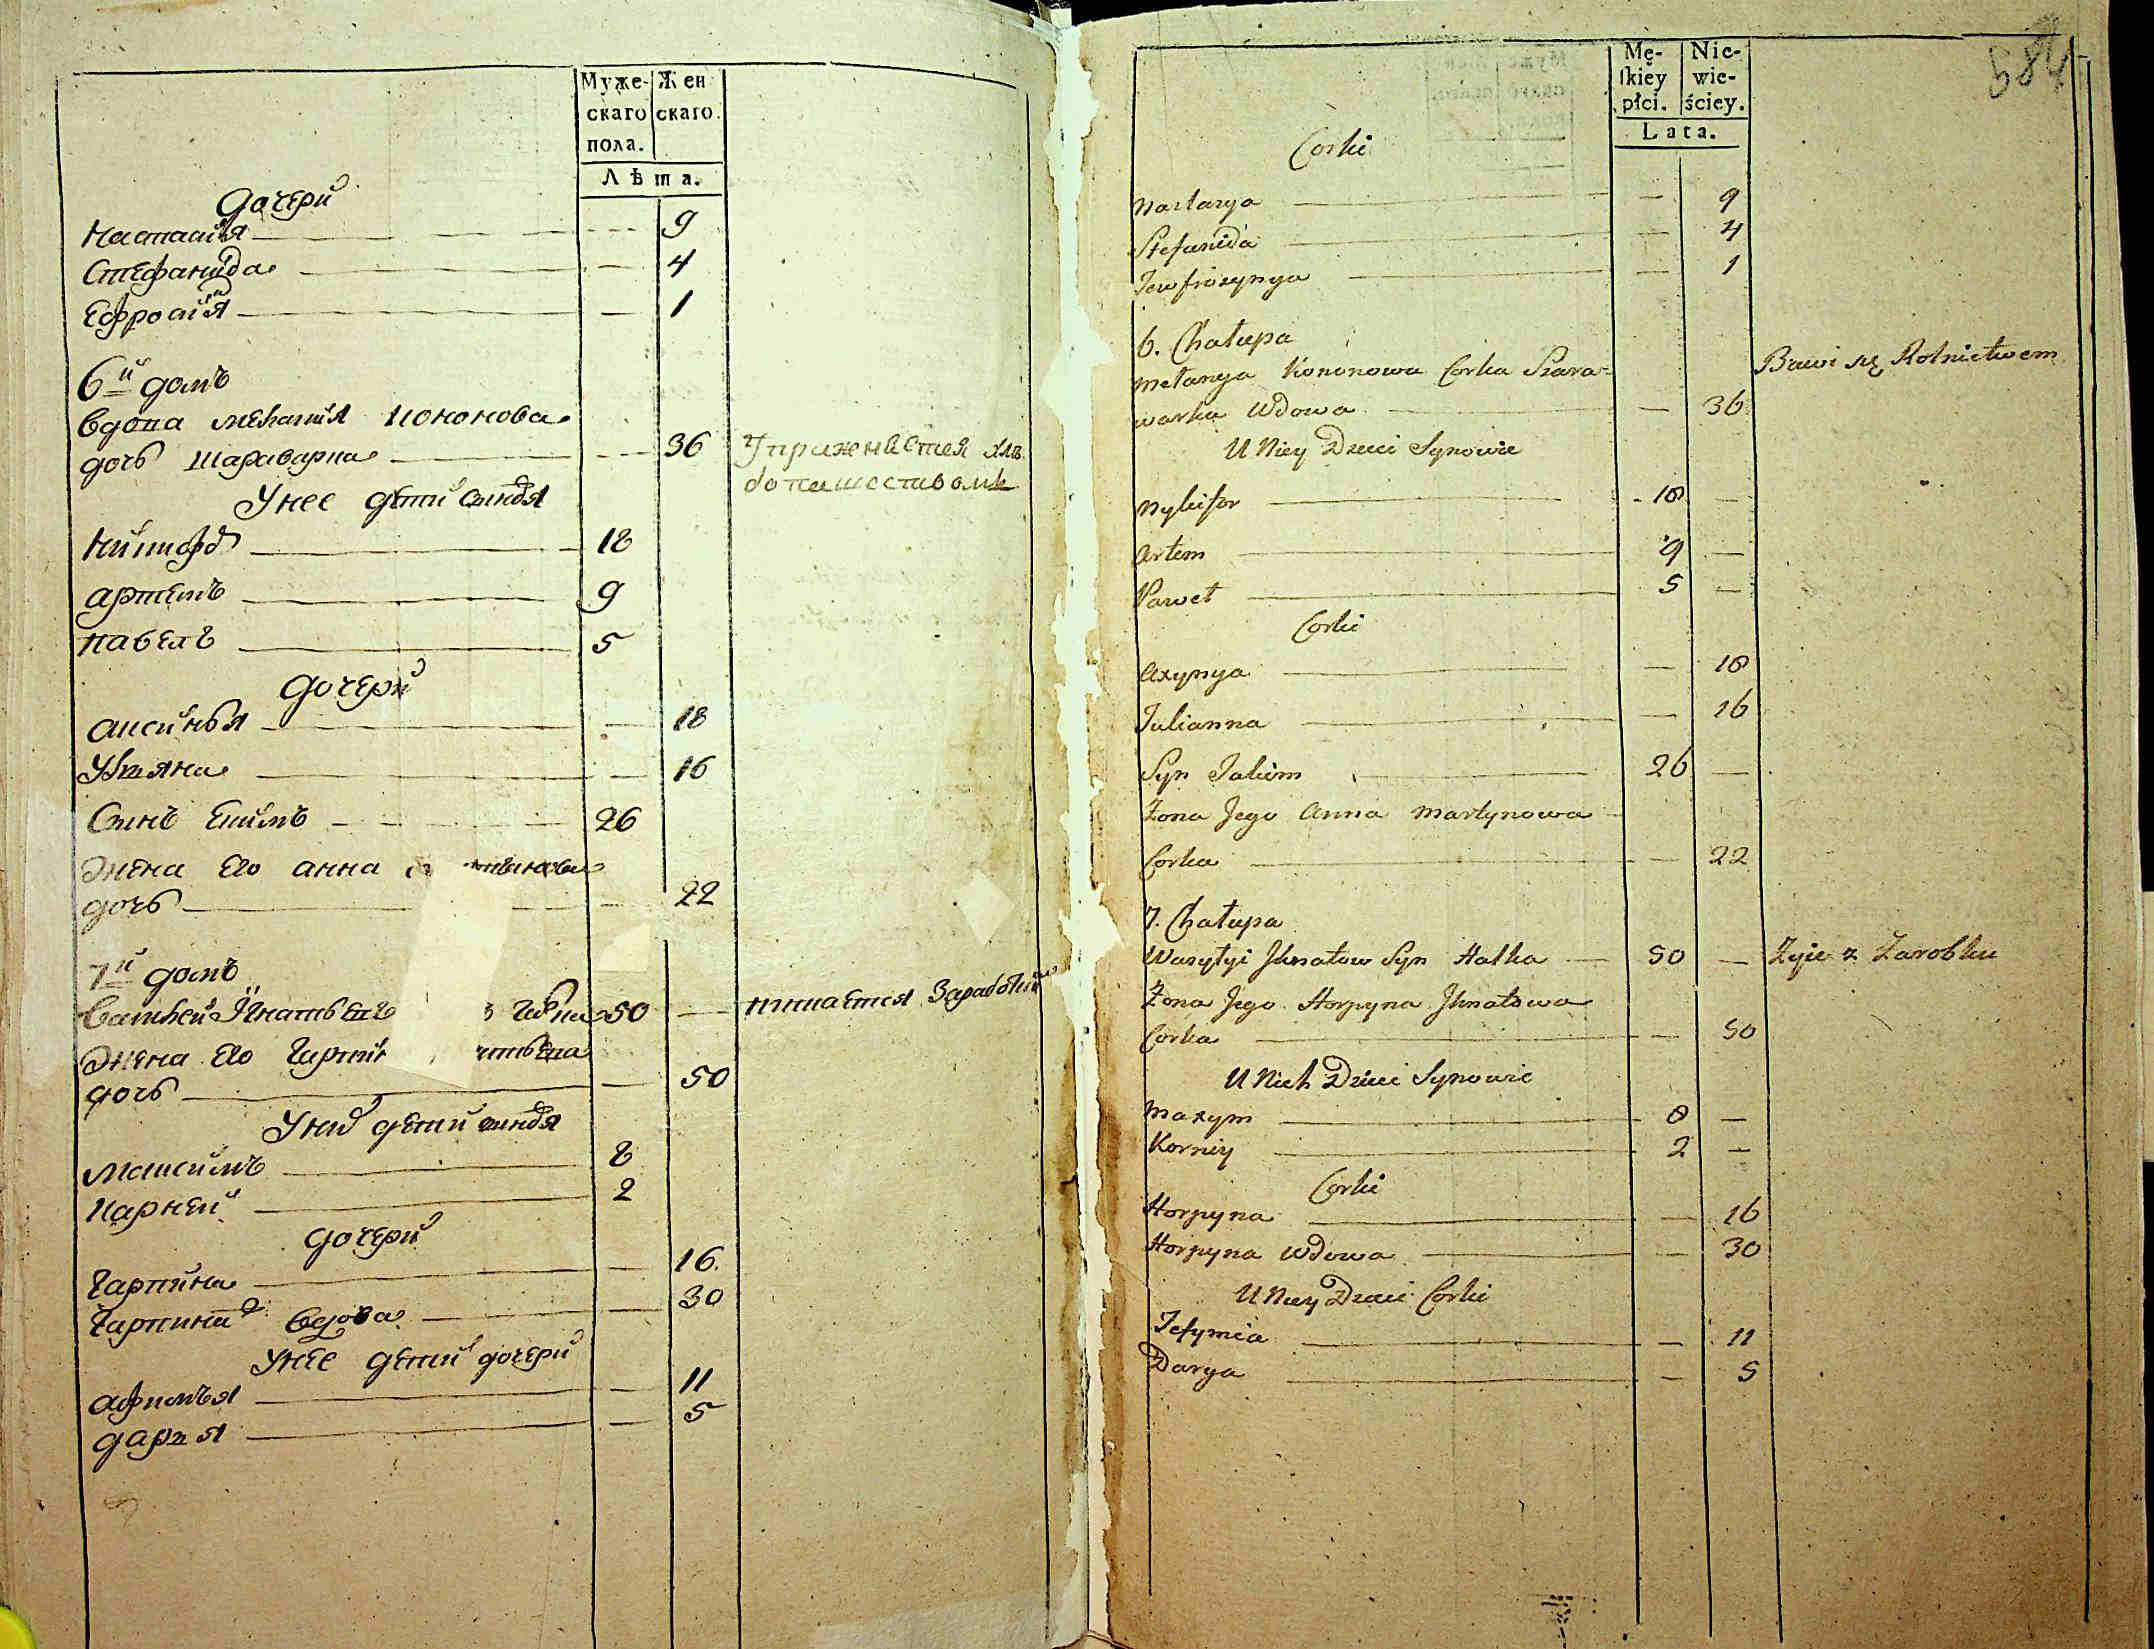 Муже-
скаго
пола.
Жен
скаго.
Лѣта.
Дочери
Настасия — 9
Стефанида — 4
Ефросия — 1
6й домъ
Вдова Мелания Кононова
дочь Шараварка — 36
Упражняется хле
бопашествомъ
У нее дети синовя
Никифор — 18
Артемъ — 9
Павелъ — 5
Дочери
Аксинья — 18
Ульяна — 16
Синъ Екимъ — 26
Жена Его Анна
дочь — 22
7й домъ
Василей Игнатьевъ 50 — питается Заработком
Жена Его
дочь — 50
У них дети синовя
Максимъ — 8
Карней — 2
Дочери
Гарпина — 16.
Гарпина Вдова — 30
У нее дети дочери
Афимья — 11
Дарья — 5
584
Mę-
skiey
płci.
Nie-
wie-
ściey.
Lata.
Corki
Nastasya — 9
Stefanida — 4
Jewfrozynya — 1
6. Chałupa
Mełanya Kononowa Corka Szara-
warka Wdowa — 36
Bawi się Rolnictwem
U Niey Dzieci Synowie
Nykifor — 18 —
Artem — 9 —
Paweł — 5 —
Corki
Axynya — 18
Julianna — 16
Syn Jakim — 26 —
Żona Jego Anna Martynowa
Corka — 22
7. Chałupa
Wasylyi Ihnatow Syn Hałka — 50 — Żyie z Zarobku
Żona Jego Horpyna Ihnatowa
Corka — 50
U Nich Dzieci Synowie
Maxym — 8 —
Korniy — 2 —
Corki
Horpyna — 16
Horpyna Wdowa — 30
U Niey Dzieci Corki
Jefymia — 11
Darya — 5